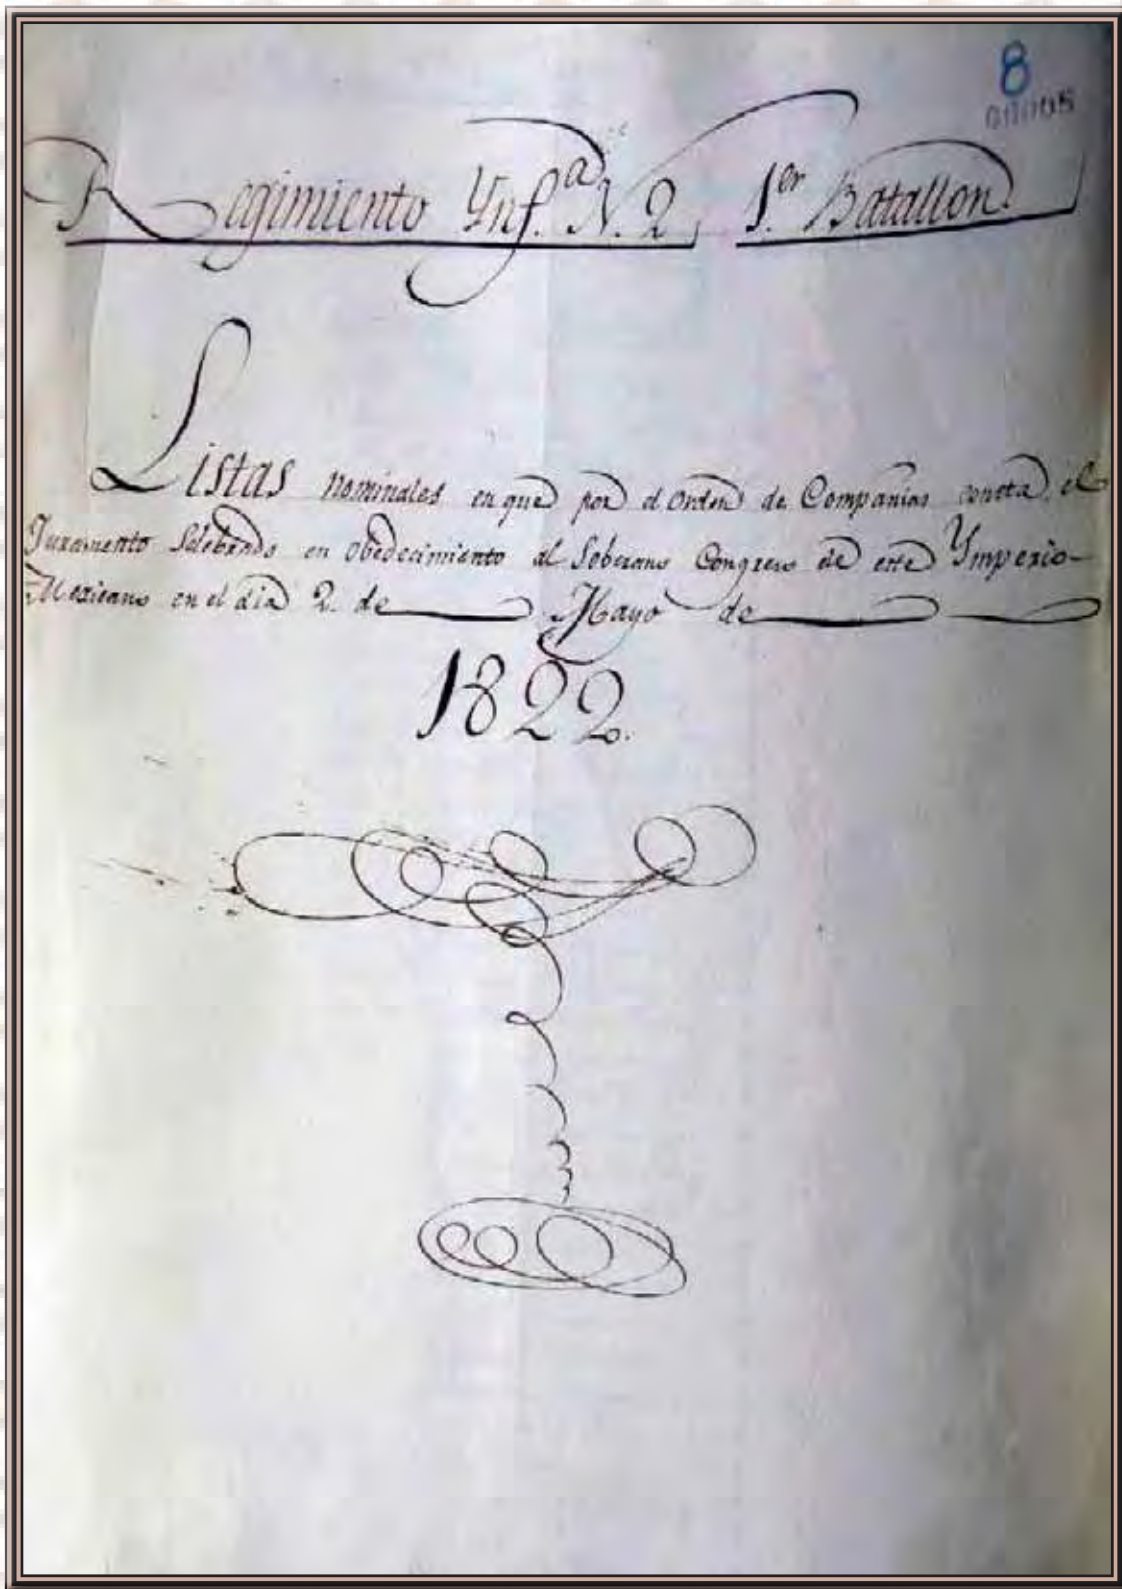 8
00005
Regimiento Ynf.a N. 2, 1.er Batallon.
Listas nominales en que por el orden de Companias consta, el
Juramento Selebrado en obedecimiento al Soberano Congreso de este Ymperio-
Mexicano en el dia 2. de Mayo de
1822.